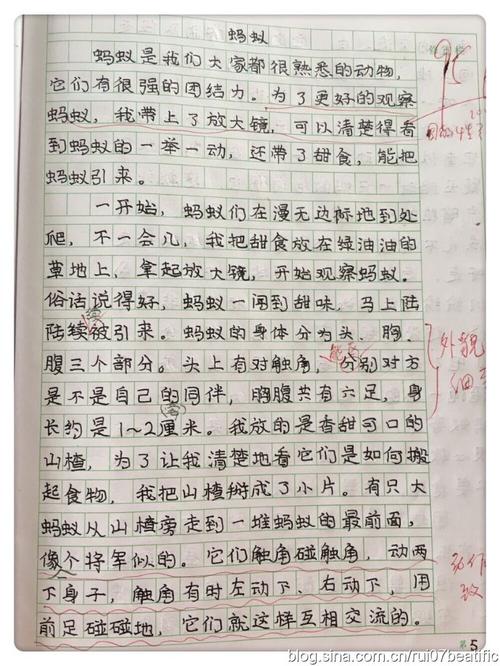 蚂蚁
蚂蚁是我们大家都很熟悉的动物，
它们有很强的团结力。为了更好的观察
蚂蚁，我带上了放大镜，可以清楚得看
到蚂蚁的一举一动，还带了甜食，能把
蚂蚁引来。
一开始，蚂蚁们在漫无边标地到处
爬，不一会儿，我把甜食放在绿油油的
草地上，拿起放大镜，开始观察蚂蚁。
俗话说得好，蚂蚁一闻到甜味，马上陆
陆续被引来。蚂蚁的身体分为头、胸、
腹三个部分。头上有对触角，分别对方
是不是自己的同伴，胸腹共有六足，身
长约是1～2厘米。我放的是香甜可口的
山楂，为了让我清楚地看它们是如何搬
起食物，我把山楂掰成了小片。有只大
蚂蚁从山楂旁走到一堆蚂蚁的最前面，
像个将军似的。它们触角碰触角，动两
下身子，触角有时左动下、右动下，用
前足碰碰地，它们就这样互相交流的。
95
续
能
外貌
细
第5
blog.sina.com.cn/rui07beatific